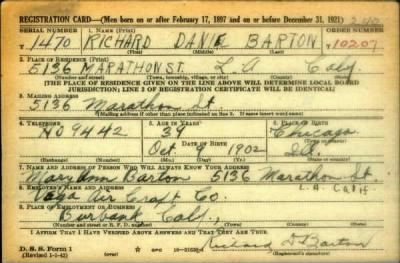 REGISTRATION CARD—(Men born on or after February 17, 1897 and on or before December 31, 1921)
SERIAL NUMBER 1. NAME (Print) ORDER NUMBER
T 1470 RICHARD DANIE BARTON 10207
(First) (Middle) (Last)
2. PLACE OF RESIDENCE (Print)
5136 MARATHON ST. L A Calif.
(Number and street) (Town, township, village, or city) (County) (State)
[THE PLACE OF RESIDENCE GIVEN ON THE LINE ABOVE WILL DETERMINE LOCAL BOARD
JURISDICTION; LINE 2 OF REGISTRATION CERTIFICATE WILL BE IDENTICAL]
3. MAILING ADDRESS
5136 Marathon St
[Mailing address if other than place indicated on line 2. If same insert word same]
4. TELEPHONE 5. AGE IN YEARS 6. PLACE OF BIRTH
NO 9442 39 Chicago
DATE OF BIRTH (Town or county)
Oct. 9 1902 Ill.
(Exchange) (Number) (Mo.) (Day) (Yr.) (State or country)
7. NAME AND ADDRESS OF PERSON WHO WILL ALWAYS KNOW YOUR ADDRESS
Mary Ann Barton 5136 Marathon St
8. EMPLOYER'S NAME AND ADDRESS L.A. Calif
Vega Air Craft Co.
9. PLACE OF EMPLOYMENT OR BUSINESS
Burbank Calif.,
(Number and street or R. F. D. number) (Town) (County) (State)
I AFFIRM THAT I HAVE VERIFIED ABOVE ANSWERS AND THAT THEY ARE TRUE.
D. S. S. Form 1 Richard D Barton
(Revised 1-1-42) (over) (Registrant's signature)